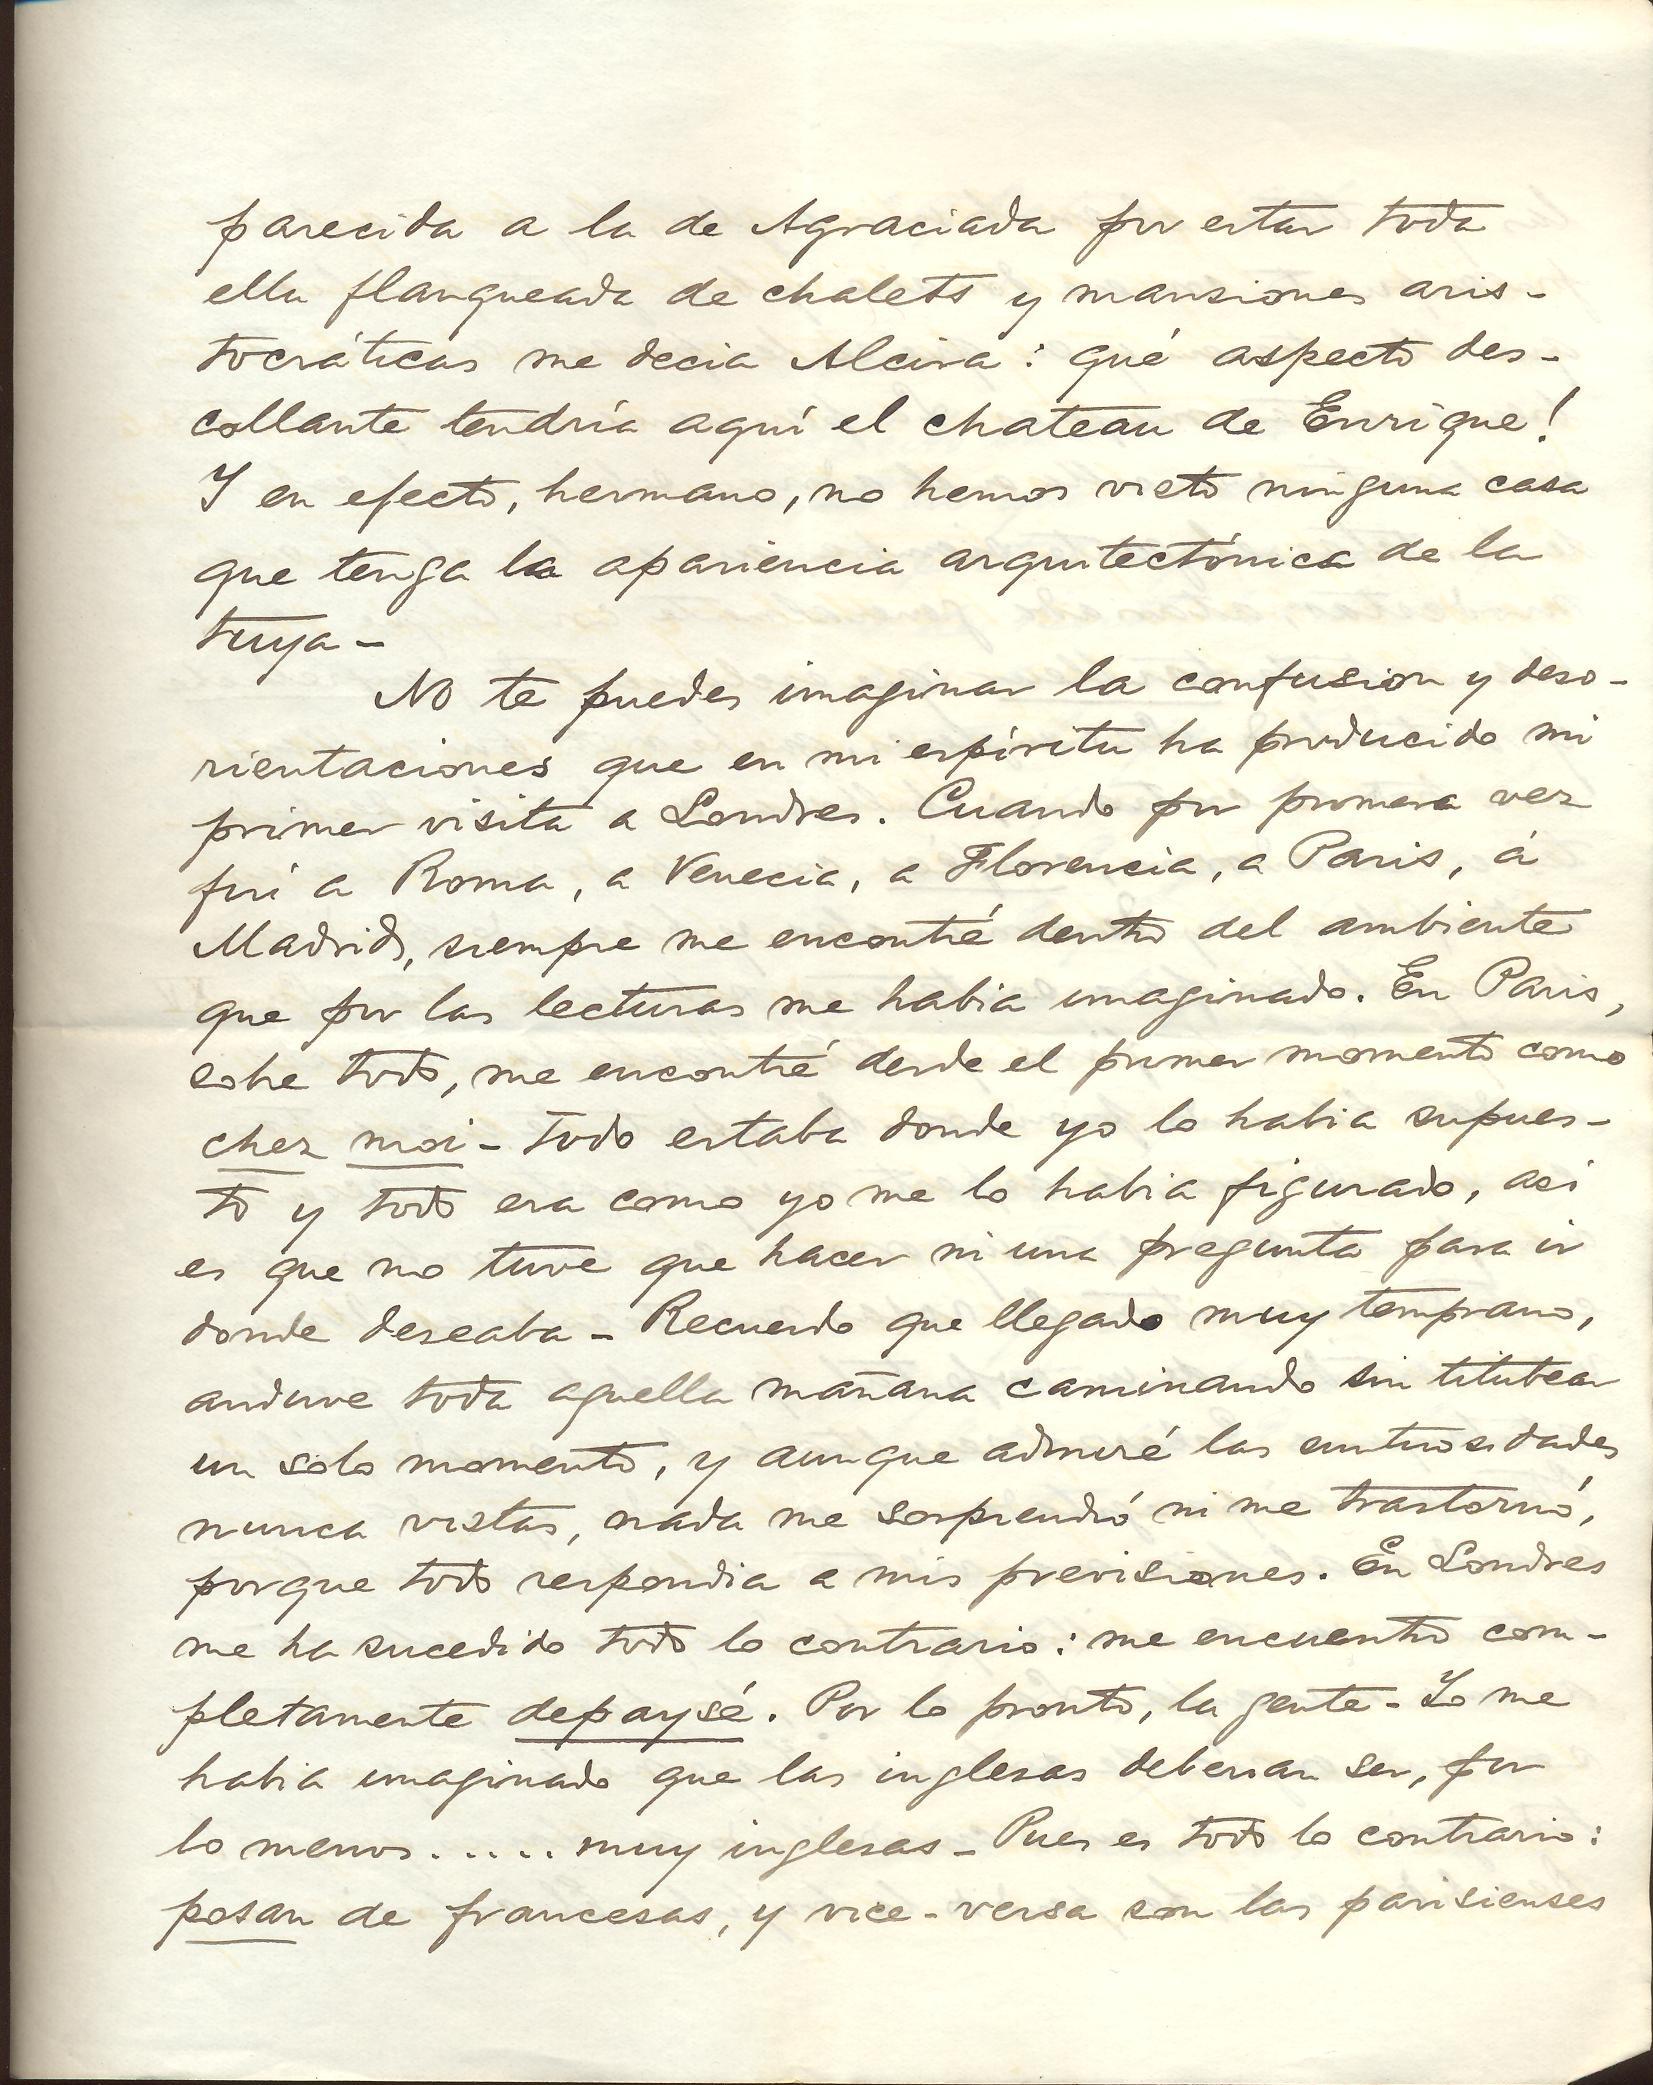 parecida a la de Agraciada por estar toda
ella flanqueada de chalets y mansiones aris-
tocráticas me decia Alcira: qué aspecto des-
collante tendría aquí el chateau de Enrique!
Y en efecto, hermano, no hemos visto ninguna casa
que tenga la apariencia arquitectónica de la
tuya-
No te puedes imaginar la confusion y deso-
rientaciones que en mi espíritu ha producido mi
primer visita a Londres. Cuando por primera vez
fuí a Roma, a Venecia, a Florencia, a Paris, á
Madrid, siempre me encontré dentro del ambiente
que por las lecturas me habia imaginado. En Paris,
sobre todo, me encontré desde el primer momento como
chez moi- Todo estaba donde yo lo habia supues-
to y todo era como yo me lo habia figurado, asi
es que no tuve que hacer ni una pregunta para ir
donde deseaba- Recuerdo que llegado muy temprano,
anduve toda aquella mañana caminando sin titubear
un solo momento, y aunque admiré las suntuosidades
nunca vistas, nada me sorprendió ni me trastornó,
porque todo respondia a mis previsiones. En Londres
me ha sucedido todo lo contrario: me encuentro com-
pletamente depaysé. Por lo pronto, la gente- Yo me
habia imaginado que las inglesas deberian ser, por
lo menos..... muy inglesas- Pues es todo lo contrario:
posan de francesas, y vice-versa con las parisienses